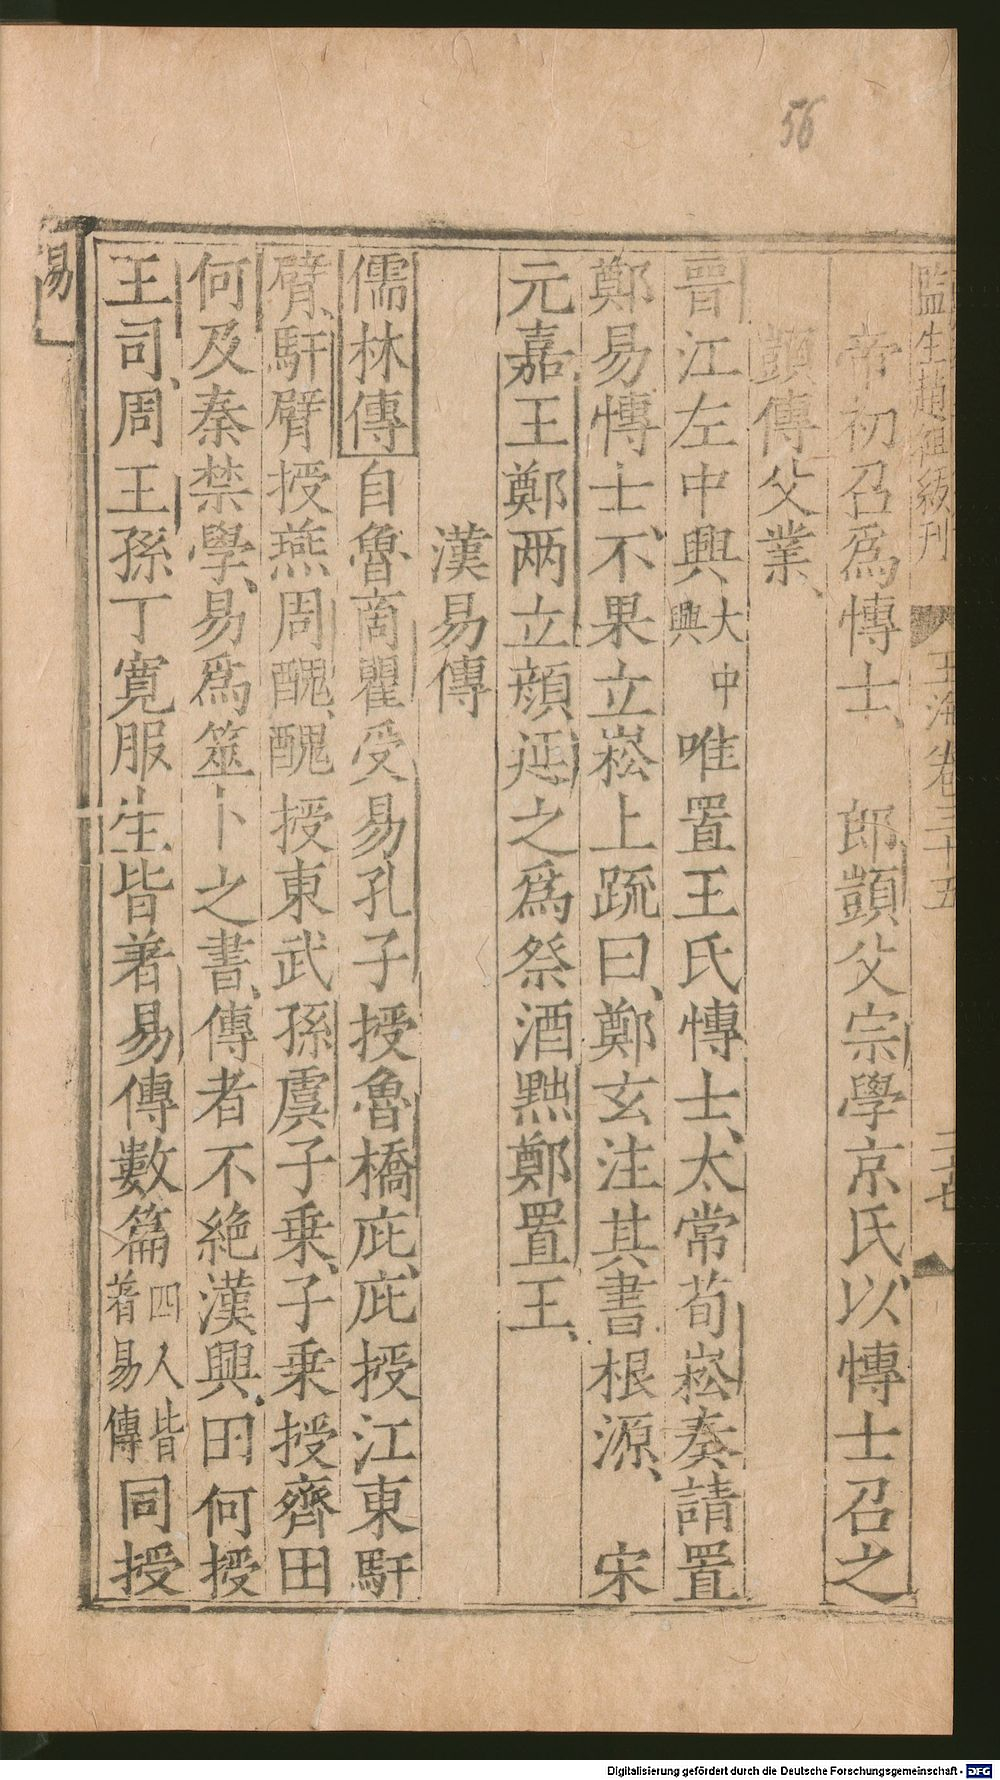 56
監生趙祖級刊 玉海卷三十五 二十七
帝初召爲博士、 郎顗父宗學京氏以博士召之
顗傳父業、
晉江左中興大中興唯置王氏博士、太常荀崧奏請置
鄭易博士、不果立崧上疏曰、鄭玄注其書根源、 宋
元嘉王鄭兩立顔延之爲祭酒黜鄭置王、
漢易傳
儒林傳自魯商瞿受易孔子授魯橋庇、庇授江東馯
臂、馯臂授燕周醜、醜授東武孫虞子乗、子乗授齊田
何及秦禁學、易爲筮卜之書、傳者不絶漢興、田何授
王司、周王孫丁寛服生皆著易傳數篇四人皆著易傳同授
易
Digitalisierung gefördert durch die Deutsche Forschungsgemeinschaft - DFG